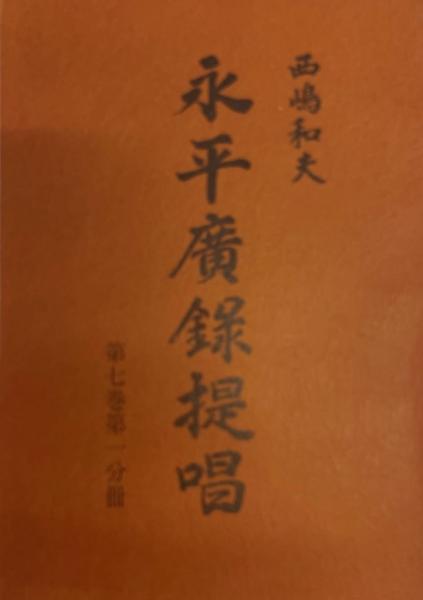 西嶋和夫
永平廣錄提唱
第七巻第一分冊